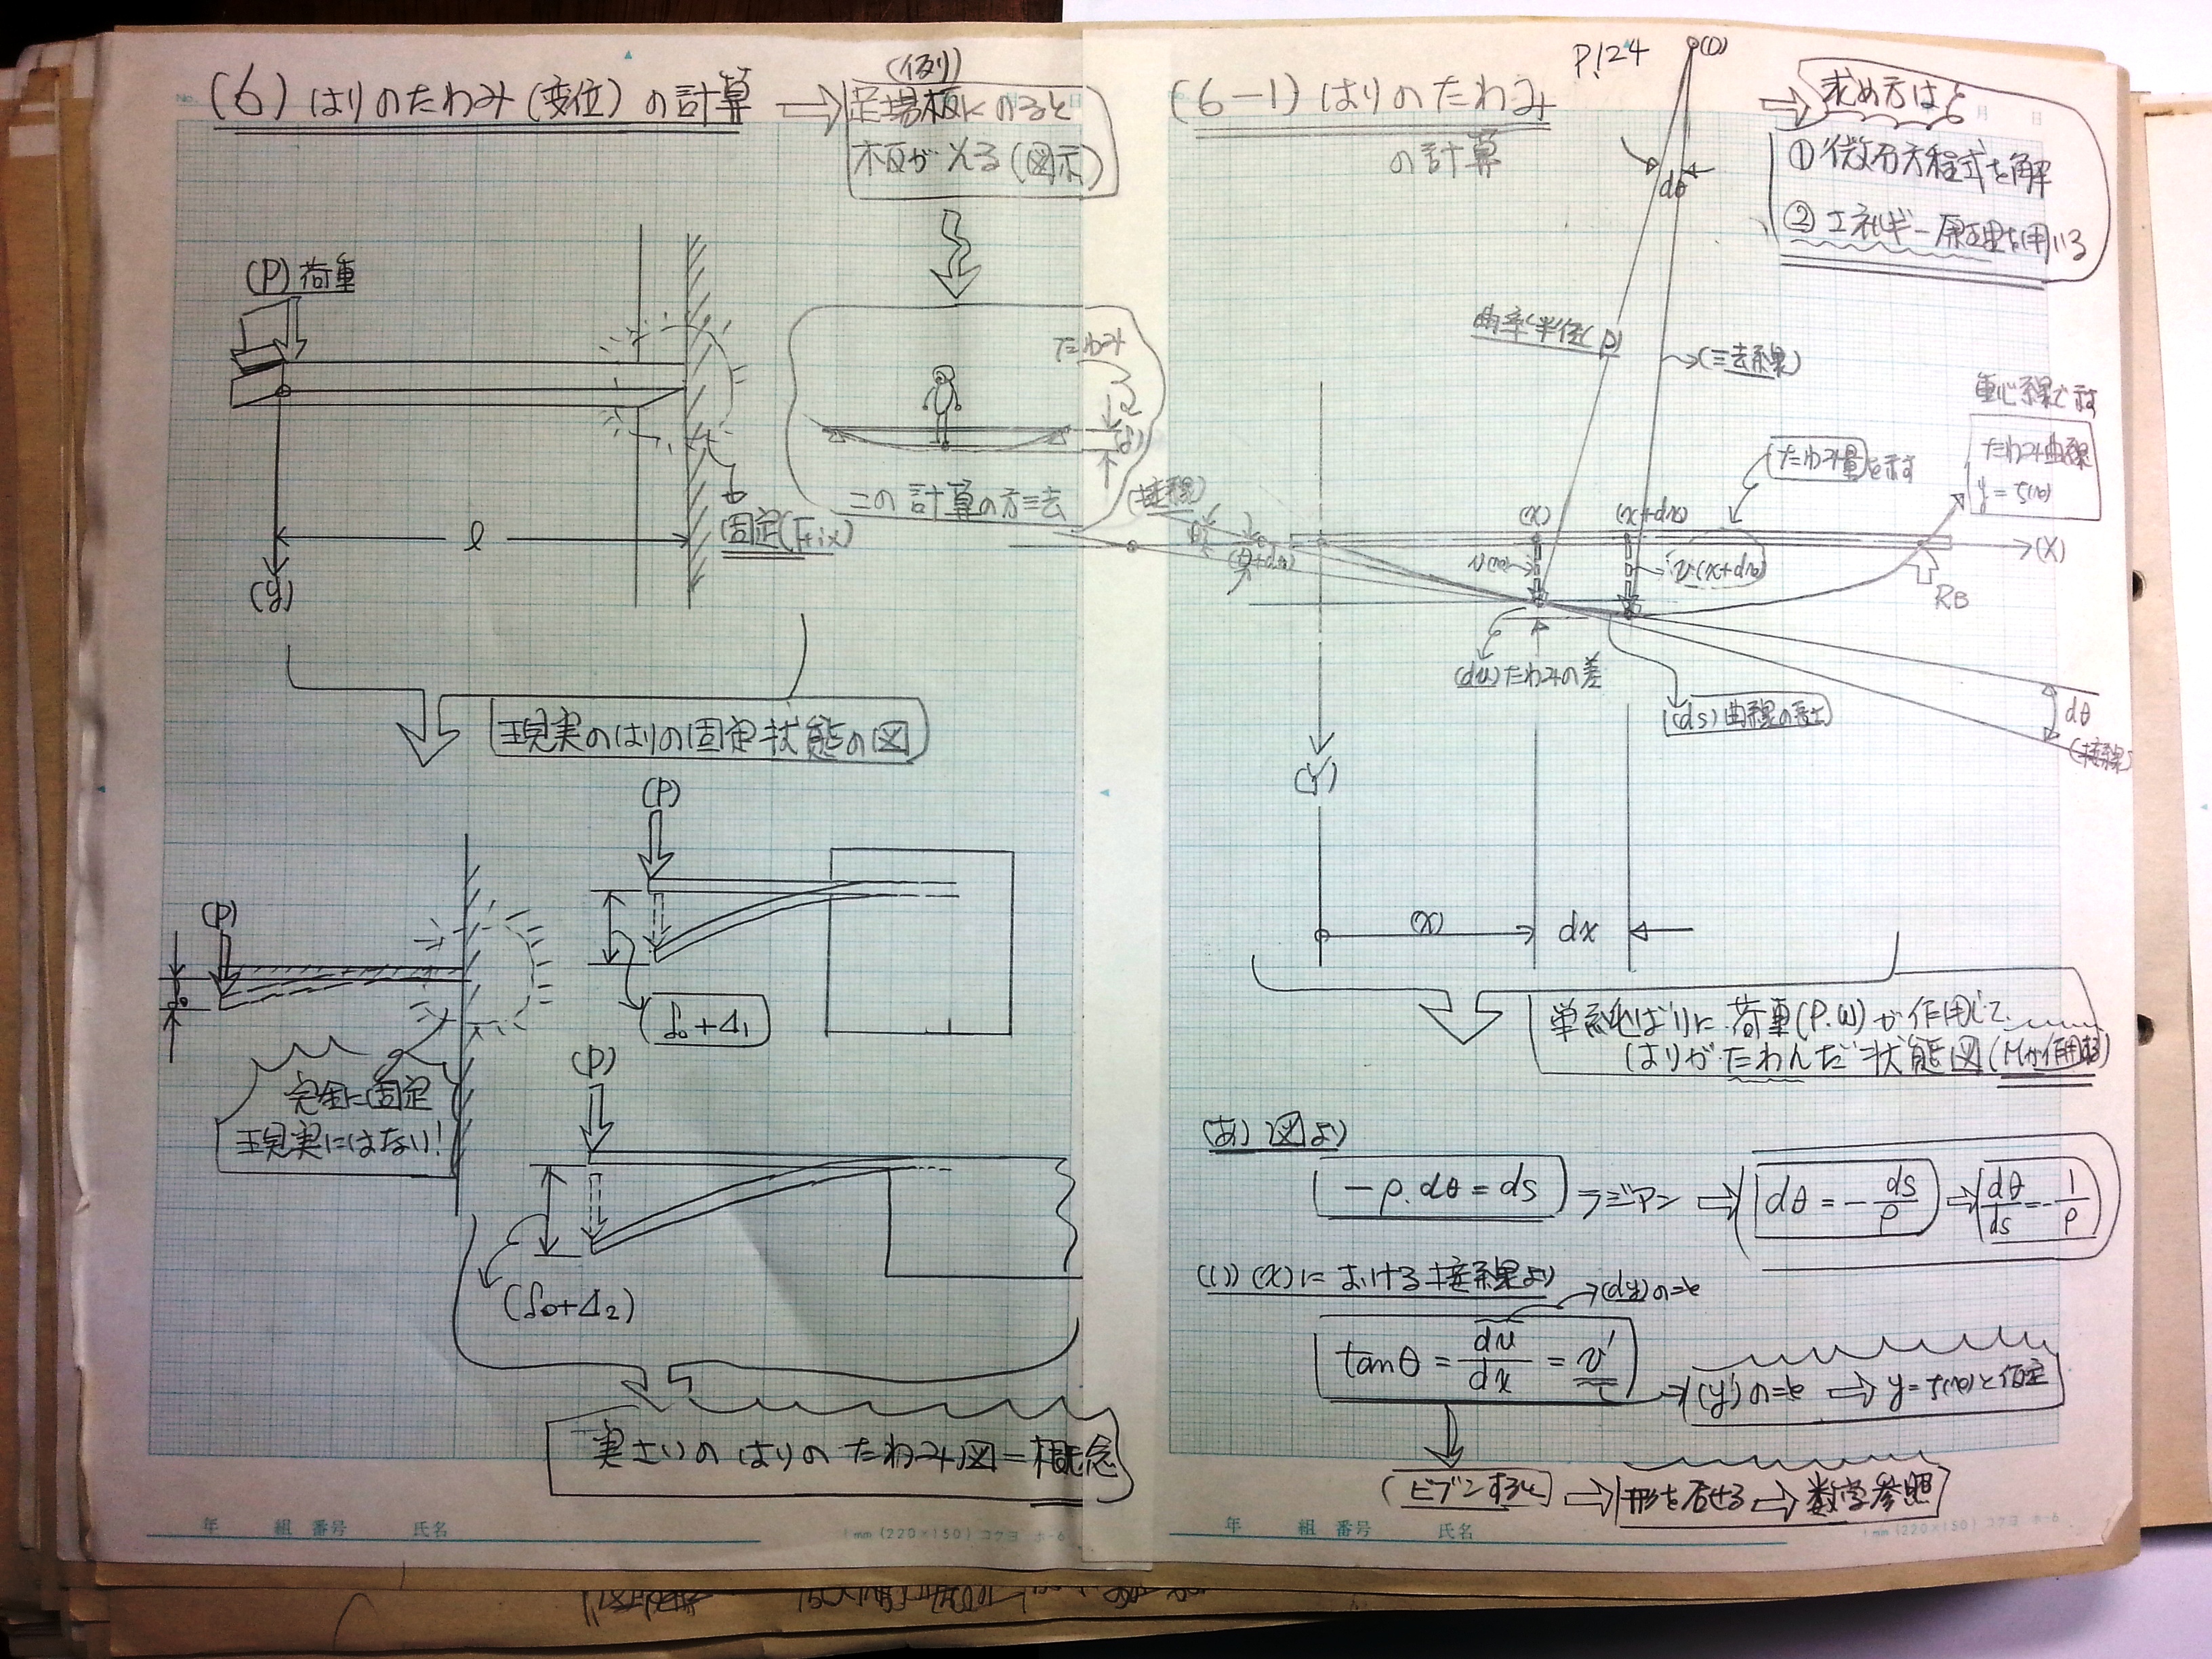 (6) はりのたわみ(変位)の計算
(例)
足場板にのると
板が
(図示)
(P) 荷重
たわみ
この計算の方法
固定(Fix)
l
(y)
現実のはりの固定状態の図
(P)
(P)
δ₀+Δ₁
完全に固定
現実にはない!
(P)
(δ₀+Δ₂)
実さいのはりのたわみ図=概念
年 組 番号 氏名
1mm (220×150) コクヨ ホ-6
P.124
(6-1) はりのたわみ
の計算
(O)
dθ
求め方は
① 微分方程式を解
② エネルギー原理を用いる
曲率半径(ρ)
(法線)
重心線で示す
たわみ曲線
たわみ量を示す
(接線)
(x)
(x+dx)
(X)
v(x+dx)
RB
(dv)たわみの差
(ds)曲線の長さ
dθ
(接線)
(Y)
(x)
dx
単純ばりに荷重(P.W)が作用して
はりがたわんだ状態図(Mが作用する)
(あ) 図より
-ρ.dθ=ds ラジアン
dθ=-ds/ρ
dθ/ds=-1/ρ
(い) (x)における接線より
(dy)のこと
tanθ=dv/dx=v'
(y')のこと
y=f(x)と仮定
(ビブンすると)
形を否せる
数学参照
年 組 番号 氏名
1mm (220×150) コクヨ ホ-6